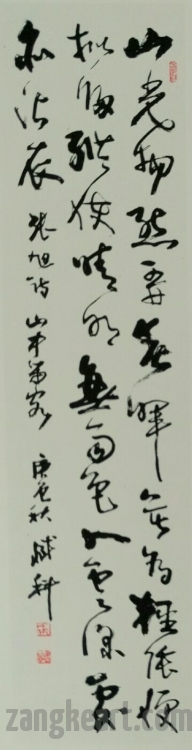 山光物態弄春暉莫為輕陰便
擬歸縱使晴明無雨色入雲深處
亦沾衣 張旭詩 山中留客 庚寅秋
zangkeart.com